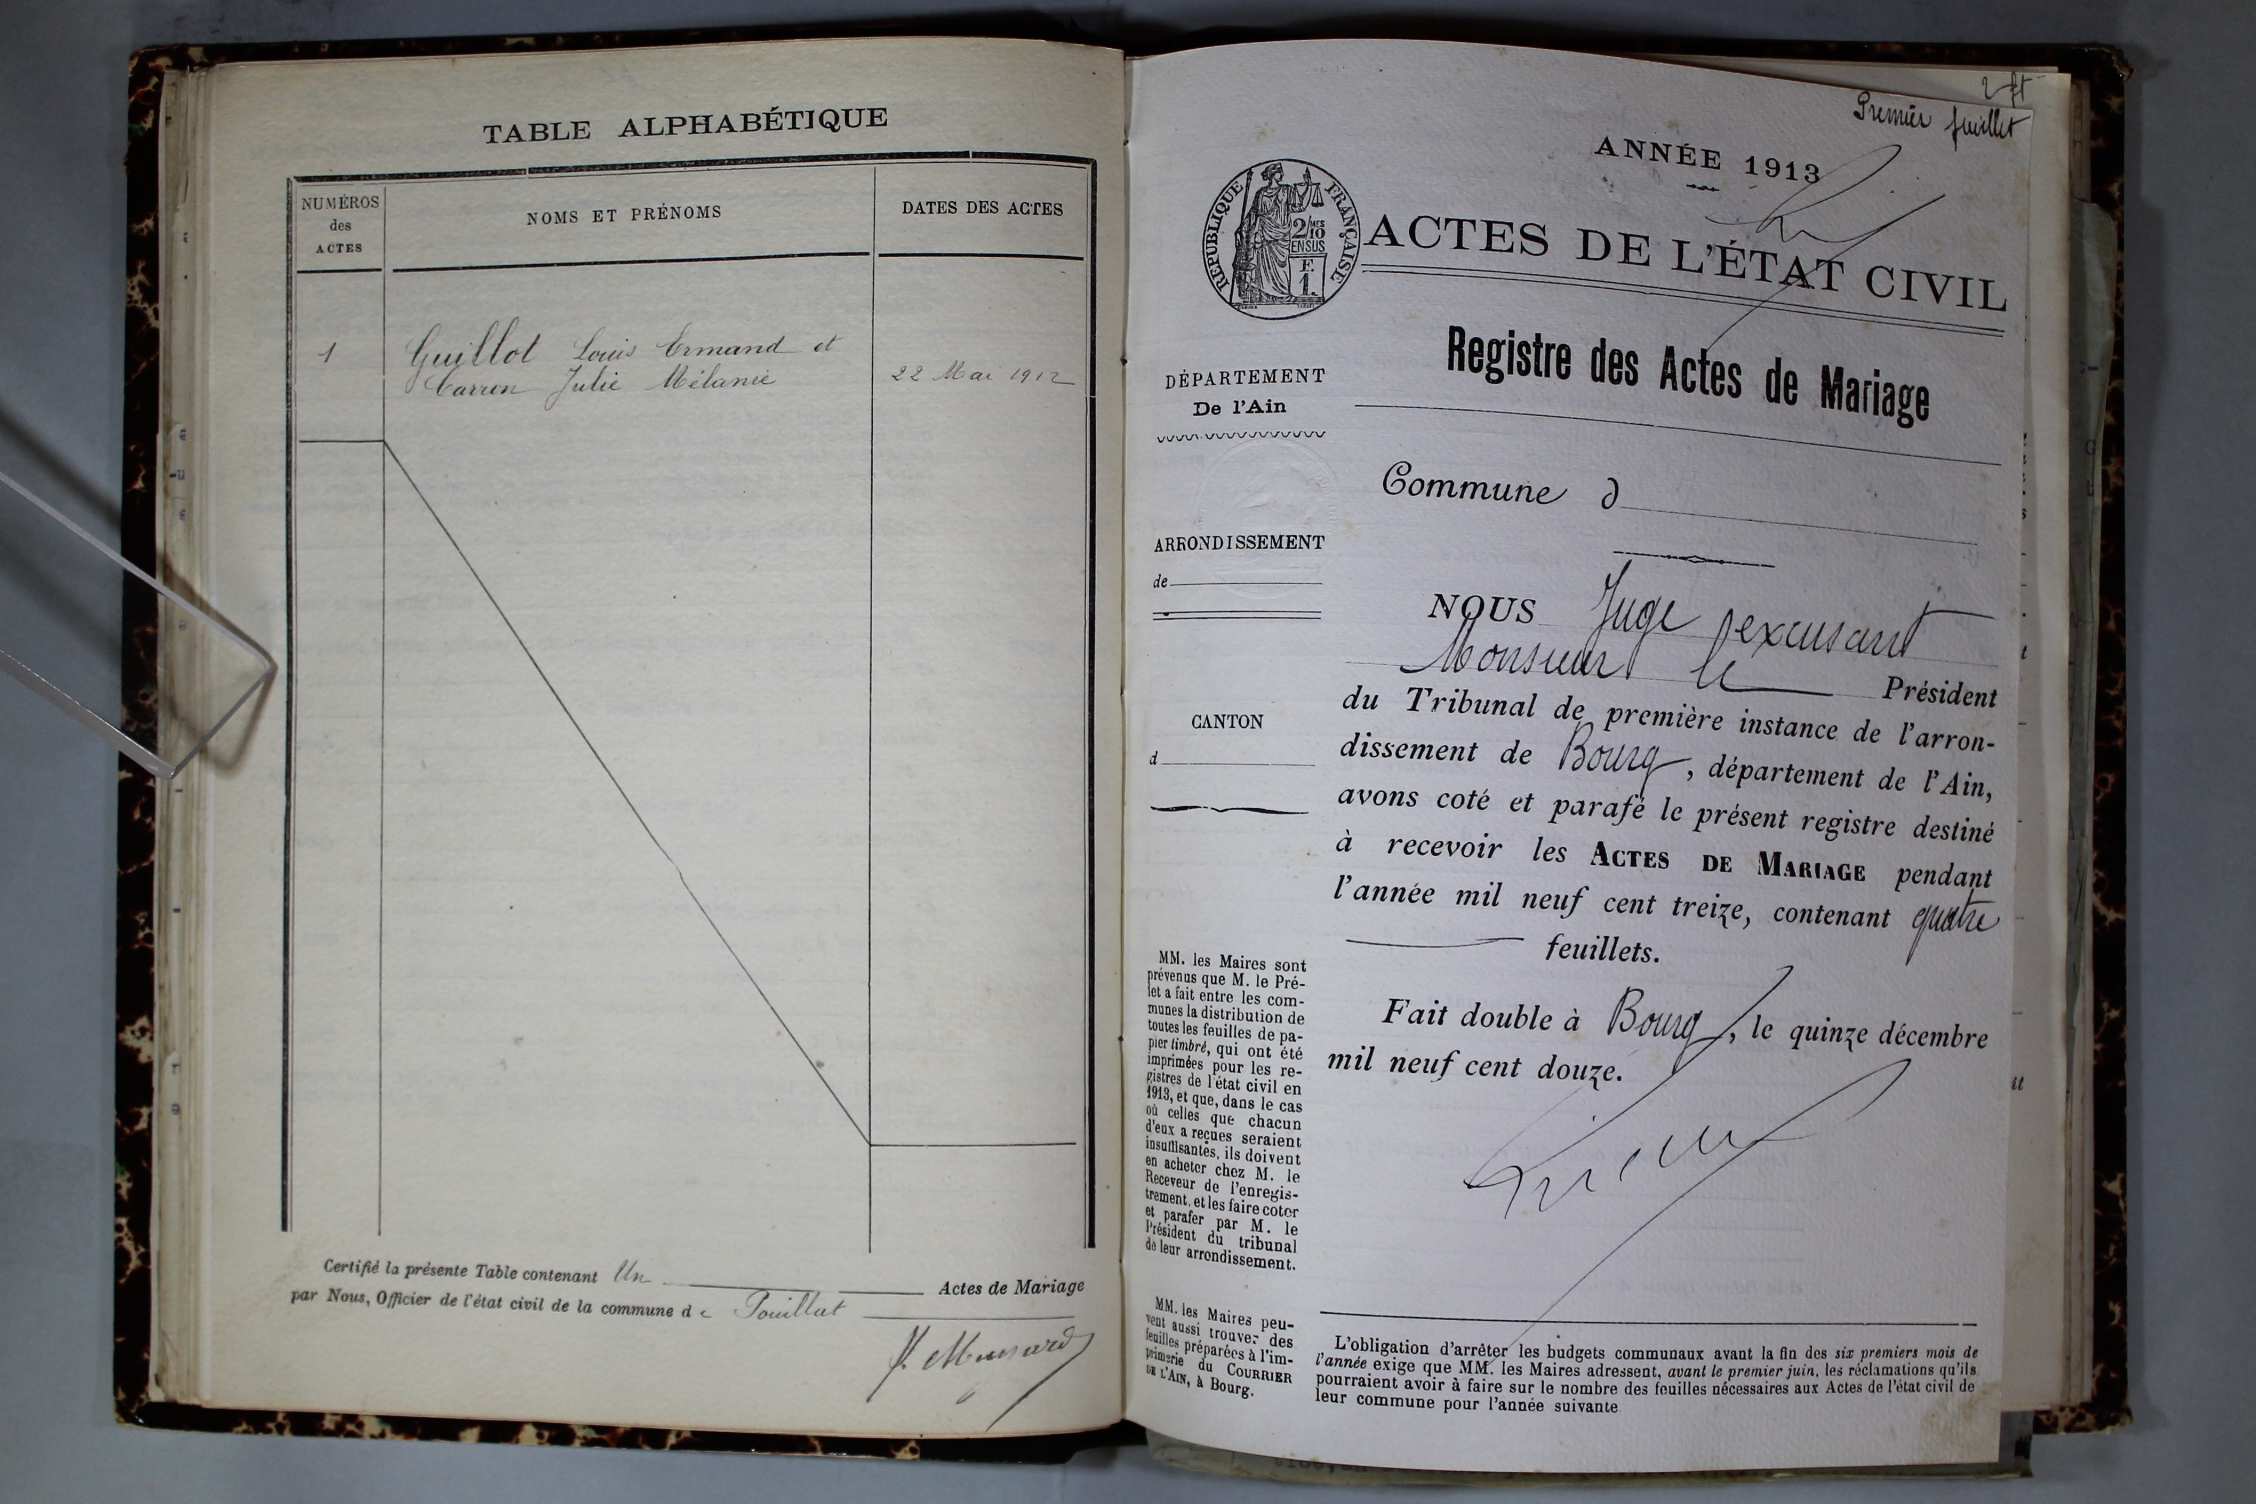 TABLE ALPHABÉTIQUE
NUMÉROS
des
ACTES
NOMS ET PRÉNOMS
DATES DES ACTES
1
Guillot Louis Ermand et
Carren Julie Mélanie
22 Mai 1912
Certifié la présente Table contenant Un Actes de Mariage
par Nous, Officier de l'état civil de la commune de Pouillat
2 ft
Premier feuillet
ANNÉE 1913
RÉPUBLIQUE FRANÇAISE
2/MES
10
EN SUS
F.
1.
ACTES DE L'ÉTAT CIVIL
Registre des Actes de Mariage
DÉPARTEMENT
De l'Ain
Commune d
ARRONDISSEMENT
de
CANTON
d
NOUS Juge excusant
Monsieur le Président
du Tribunal de première instance de l'arron-
dissement de Bourg, département de l'Ain,
avons coté et parafé le présent registre destiné
à recevoir les ACTES DE MARIAGE pendant
l'année mil neuf cent treize, contenant quatre
feuillets.
Fait double à Bourg, le quinze décembre
mil neuf cent douze.
MM. les Maires sont
prévenus que M. le Pré-
fet a fait entre les com-
munes la distribution de
toutes les feuilles de pa-
pier timbré, qui ont été
imprimées pour les re-
gistres de l'état civil en
1913, et que, dans le cas
où celles que chacun
d'eux a reçues seraient
insuffisantes, ils doivent
en acheter chez M. le
Receveur de l'enregis-
trement, et les faire coter
et parafer par M. le
Président du tribunal
de leur arrondissement.
MM. les Maires peu-
vent aussi trouver des
feuilles préparées à l'im-
primerie du COURRIER
DE L'AIN, à Bourg.
L'obligation d'arrêter les budgets communaux avant la fin des six premiers mois de
l'année exige que MM. les Maires adressent, avant le premier juin, les réclamations qu'ils
pourraient avoir à faire sur le nombre des feuilles nécessaires aux Actes de l'état civil de
leur commune pour l'année suivante